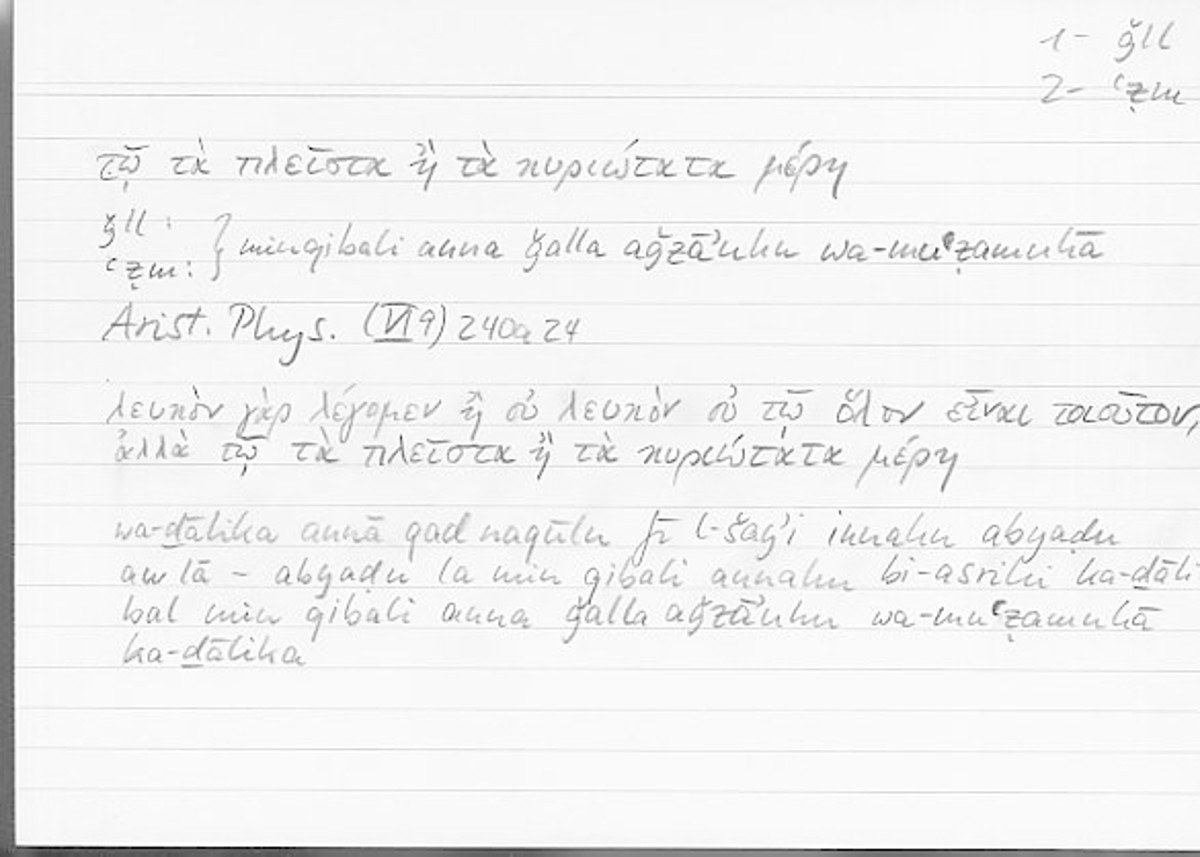 1- ǧll
2- ʿẓm
τῷ τὰ πλεῖστα ἢ τὰ κυριώτατα μέρη
ǧll:
ʿẓm: } min qibali anna ǧalla aǧzāʾuhu wa-muʿẓamuhā
Arist. Phys. (VI 9) 240a 24
λευκὸν γὰρ λέγομεν ἢ οὐ λευκὸν οὐ τῷ ὅλον εἶναι τοιοῦτον,
ἀλλὰ τῷ τὰ πλεῖστα ἢ τὰ κυριώτατα μέρη
wa-ḏālika annā qad naqūlu fī l-šayʾi innahu abyaḍu
aw lā – abyaḍu lā min qibali annahu bi-asrihi ka-ḏāli
bal min qibali anna ǧalla aǧzāʾuhu wa-muʿẓamuhā
ka-ḏālika